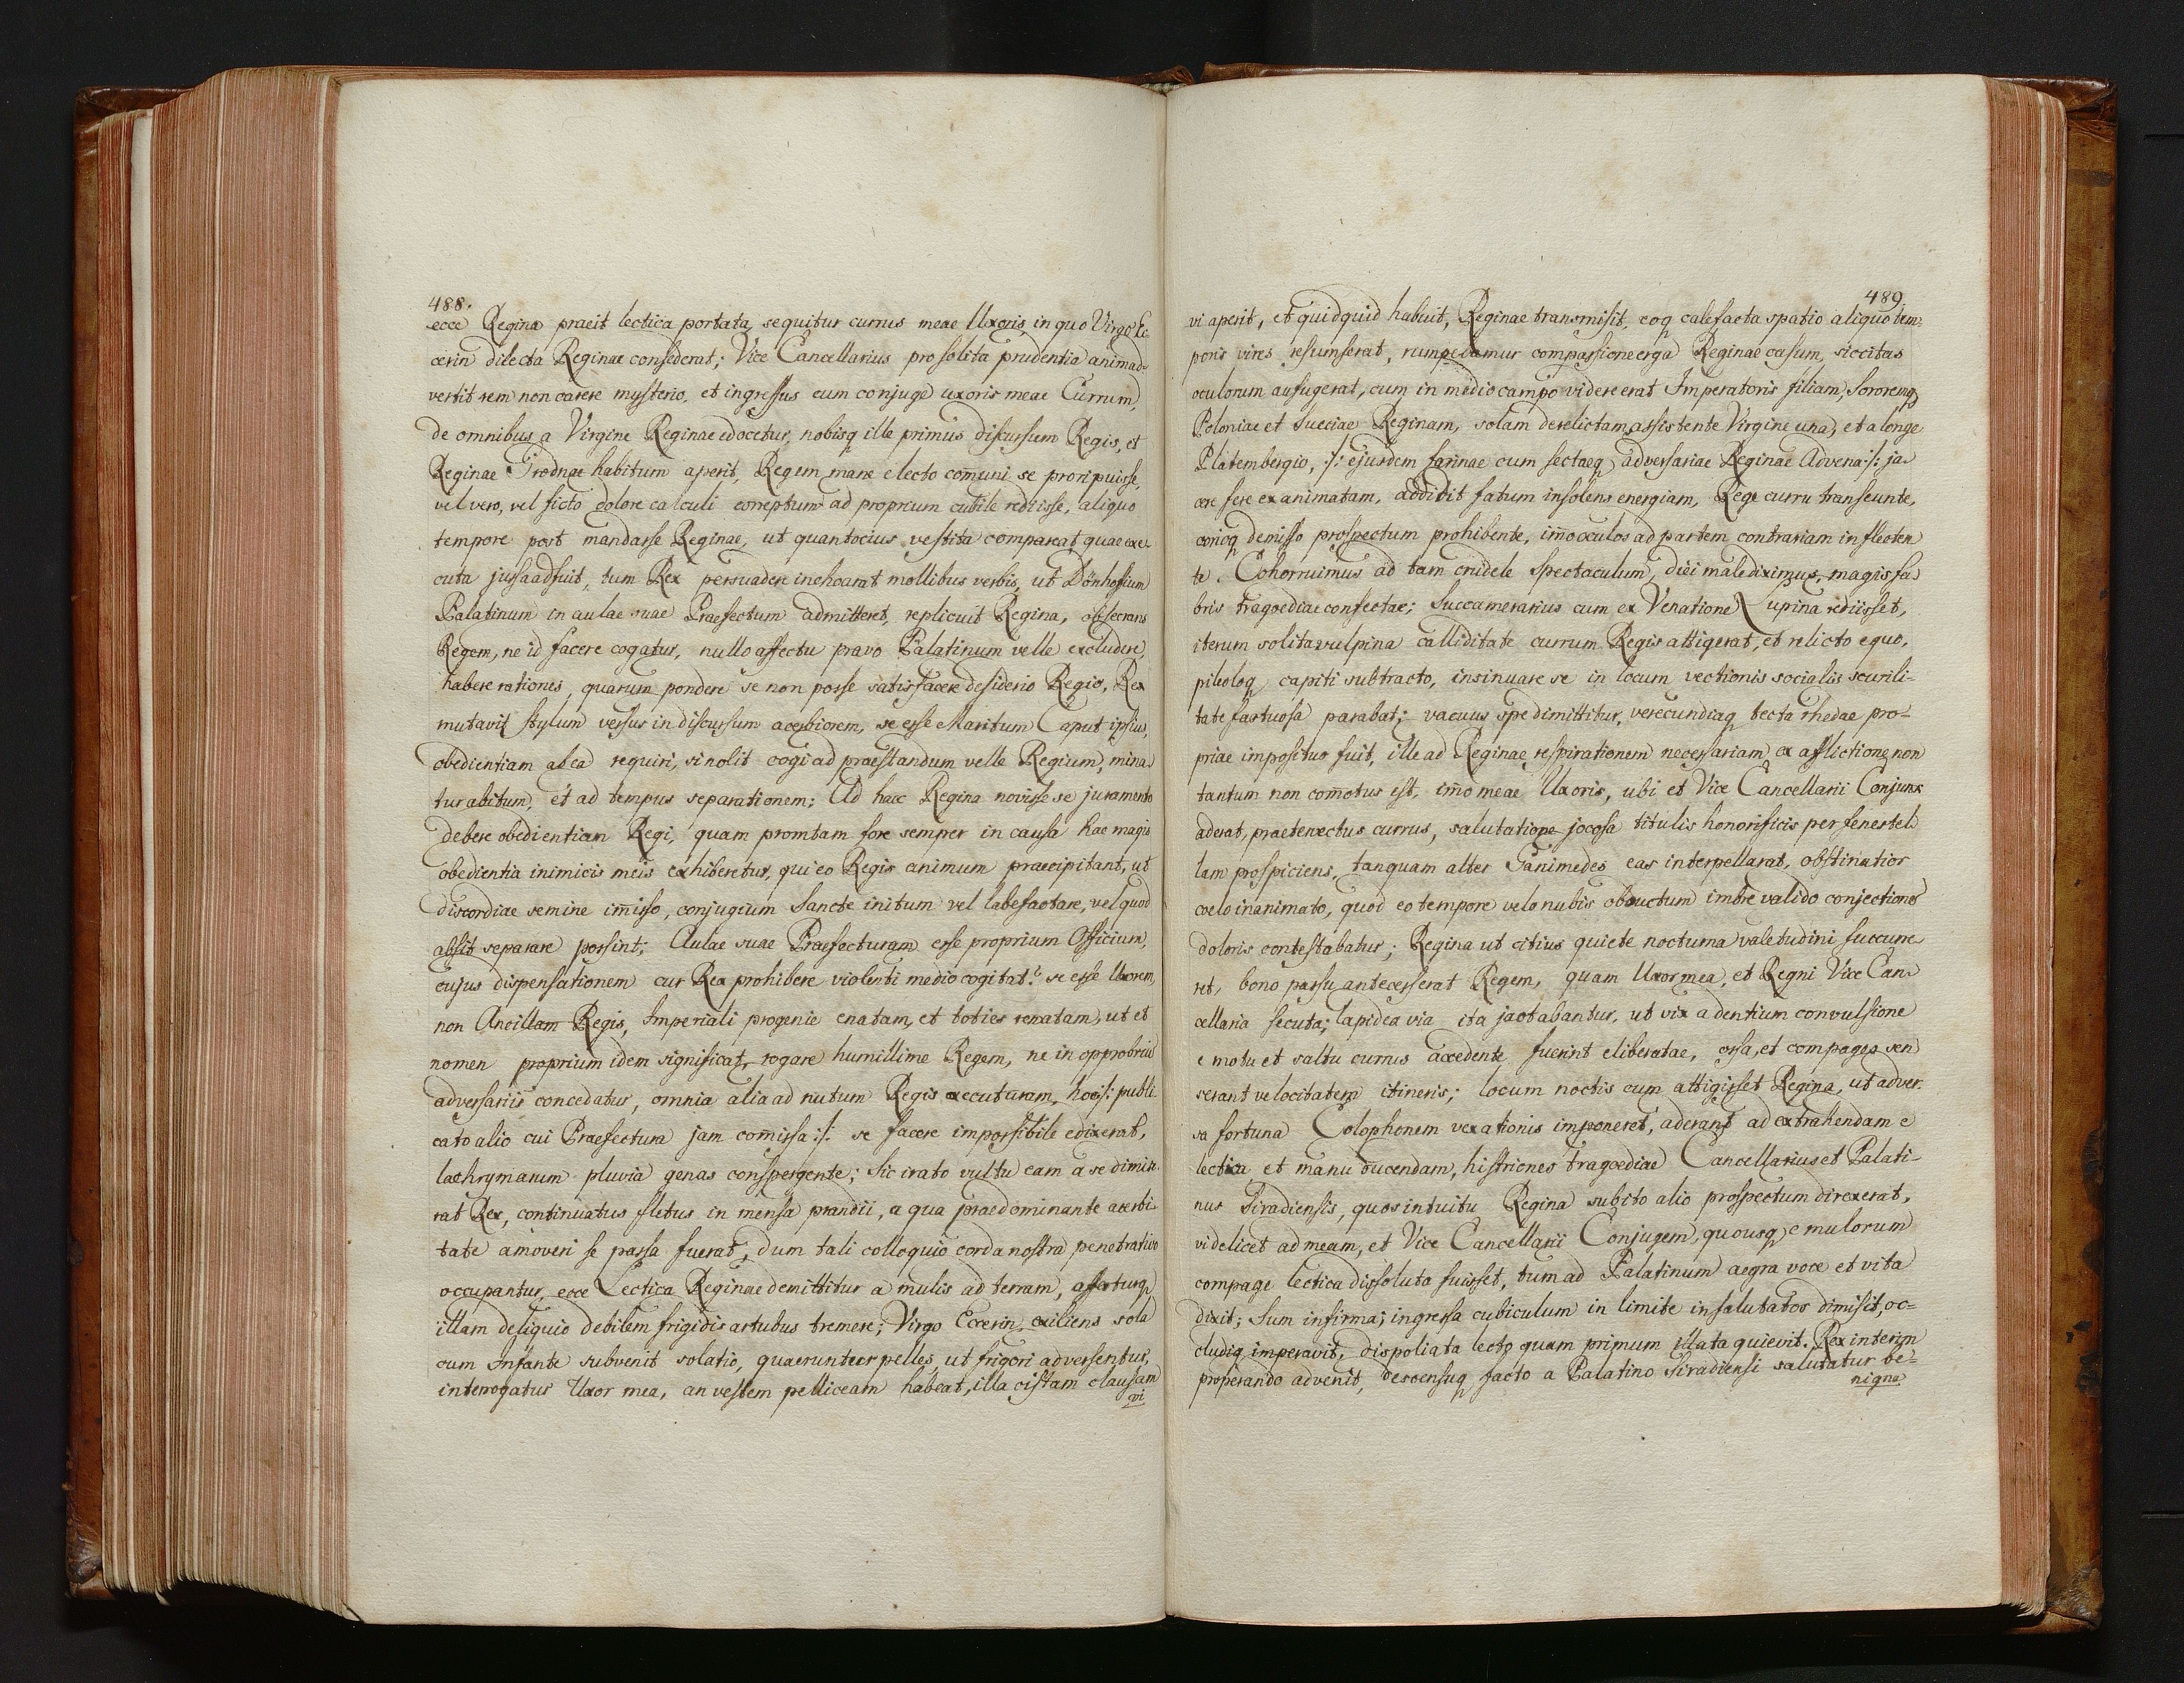 488.
ecce Regina praeit lectica portata, sequitur currus meae Uxoris in quo Virgo Ec-
cerin dilecta Reginae consederat; Vice Cancellarius pro solita prudentia animad-
vertit rem non carere mysterio, et ingressus cum conjuge uxoris meae Currum,
de omnibus a Virgine Reginae edocetur, nobisq ille primus discursum Regis, et
Reginae Grodnae habitum aperit, Regem mane e lecto comuni se proripuisse,
vel vero, vel ficto dolore calculi correptum ad proprium cubile rediisse, aliquo
tempore post mandasse Reginae, ut quantocius vestita compareat, quae exe-
cuta jussa adfuit, tum Rex persuadere inchoarat mollibus verbis, ut Dönhoffium
Palatinum in aulae suae Praefectum admitteret, replicuit Regina, obsecrans
Regem, ne id facere cogatur, nullo affectu pravo Palatinum velle excludere,
habere rationes, quarum pondere se non posse satisfacere desiderio Regio, Rex
mutavit stylum versus in discursum acerbiorem, se esse Maritum Caput ipsius,
obedientiam ab ea requiri, si nolit cogi ad praestandum velle Regium, mina-
tur abitum, et ad tempus separationem; Ad haec Regina novisse se juramento
debere obedientiam Regi, quam promtam fore semper in causa hac magis
obedientia inimicis meis exhiberetur, qui eo Regis animum praecipitant, ut
discordiae semine im̄isso, conjugium Sancte initum vel labefactare, vel quod
absit separare possint; Aulae suae Praefecturam esse proprium Officium,
cujus dispensationem cur Rex prohibere violenti medio cogitat? se esse Uxorem,
non Ancillam Regis, Imperiali progenie enatam, et toties renatam, ut et
nomen proprium idem significat, rogare humillime Regem, ne in opprobrium
adversariis concedatur, omnia alia ad nutum Regis executuram, hoc /: publi-
cato alio cui Praefectura jam com̄issa :/ se facere impossibile edixerat,
lachrymarum pluvia genas conspergente; Sic irato vultu eam a se dimise-
rat Rex, continuatus fletus in mensa prandii, a qua praedominante acerbi-
tate amoveri se passa fuerat, dum tali colloquio corda nostra penetrativo
occupantur, ecce Lectica Reginae demittitur a mulis ad terram, affaturq
illam deliquio debilem frigidis artubus tremere; Virgo Eccerin exiliens sola
cum Infante subvenit solatio, quaeruntur pelles, ut frigori adversentur,
interrogatur Uxor mea, an vestem pelliceam habeat, illa cistam clausam
vi
489.
vi aperit, et quidquid habuit, Reginae transmisit, eoq calefacta spatio aliquo tem-
poris vires resumserat, rumpebamur compassione erga Reginae casum, siccitas
oculorum aufugerat, cum in medio campo videre erat Imperatoris filiam, Sororemq
Poloniae et Sueciae Reginam, solam derelictam, assistente Virgine una, et a longe
Platembergio, /: ejusdem farinae cum sectaeq adversariae Reginae Advena :/ ja-
cere fere exanimatam, addidit fatum insolens energiam, Rege curru transeunte,
corioq demisso prospectum prohibente, im̄o oculos ad partem contrariam inflecten-
te. Cohorruimus ad tam crudele Spectaculum, diei malediximus, magis fa-
bris tragoediae confectae; Succamerarius cum ex Venatione Lupina rediisset,
iterum solita vulpina calliditate currum Regis attigerat, et relicto equo,
pileoloq capiti subtracto, insinuare se in locum vectionis socialis scurili-
tate fastuosa parabat; vacuus spe dimittitur, verecundiaq tecta rhedae pro-
priae impositus fuit, ille ad Reginae respirationem necessariam ex afflictione non
tantum non com̄otus est, im̄o meae Uxoris, ubi et Vice Cancellarii Conjunx
aderat, praetervectus currus, salutatione jocosa titulis honorificis per fenestel-
lam prospiciens, tanquam alter Ganimedes eas interpellarat, obstinatior
coelo inanimato, quod eo tempore velo nubis obductum imbre valido conjectiones
doloris contestabatur; Regina ut citius quiete nocturna valetudini succurre-
ret, bono passu antecesserat Regem, quam Uxor mea, et Regni Vice Can-
cellaria secuta; lapidea via ita jactabantur, ut vix a dentium convulsione
e motu et saltu currus accedente fuerint eliberatae, ossa, et compages sen-
serant velocitatem itineris; locum noctis cum attigisset Regina, ut adver-
sa fortuna Colophonem vexationis imponeret, aderant ad extrahendam e
lectica et manu ducendam, histriones tragoediae Cancellarius et Palati-
nus Siradiensis, quos intuitu Regina subito alio prospectum direxerat,
videlicet ad meam, et Vice Cancellarii Conjugem, quousq e mulorum
compage lectica dissoluta fuisset, tum ad Palatinum aegra voce et vita
dixit; Sum infirma; ingressa cubiculum in limite insalutatos dimisit, oc-
cludiq imperavit, dispoliata lecto quam primum illata quievit. Rex interim
properando advenit, descensuq facto a Palatino Siradiensi salutatur be-
nigna